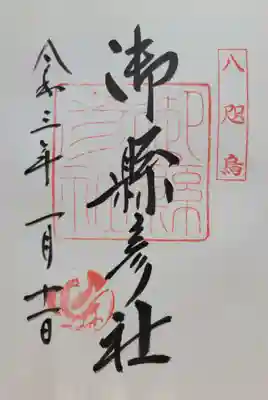 八咫烏
御縣彦社
令和三年一月十一日